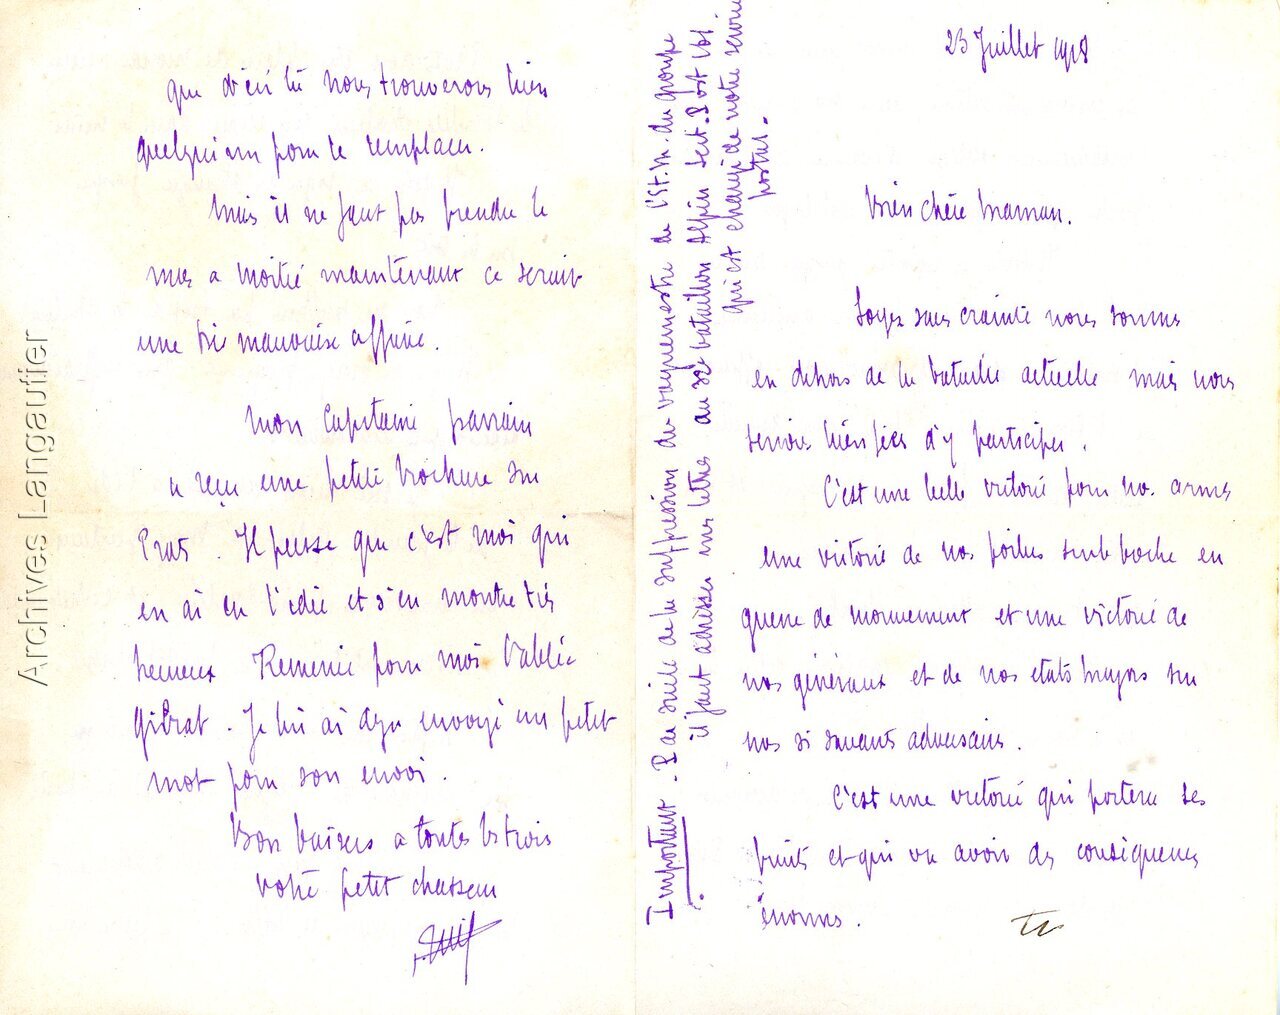 23 Juillet 1918
Bien chère Maman.
Soyez sans crainte nous sommes
en dehors de la bataille actuelle mais nous
serions bien fiers d'y participer.
C'est une belle victoire pour nos armes
une victoire de nos poilus sur le boche en
guerre de mouvement et une victoire de
nos généraux et de nos états majors sur
nos si savants adversaires.
C'est une victoire qui portera ses
fruits et qui va avoir des conséquences
énormes.
Important. Par suite de la suppression du vaguemestre de l'Et.M. du groupe
il faut adresser mes lettres au 22e bataillon Alpin Sect. Post 161
qui est chargé de notre service
postal.
que d'ici là nous trouverons bien
quelqu'un pour le remplacer.
Mais il ne faut pas prendre le
mas a moitié maintenant ce serait
une très mauvaise affaire.
Mon Capitaine parrain
a reçu une petite brochure sur
Prats. Il pense que c'est moi qui
en ai eu l'idée et s'en montre très
heureux Remercie pour moi l'abbé
Gibrat. Je lui ai deja envoyé un petit
mot pour son envoi.
Bon baisers a toutes les trois
votre petit chasseur
Archives Langautier